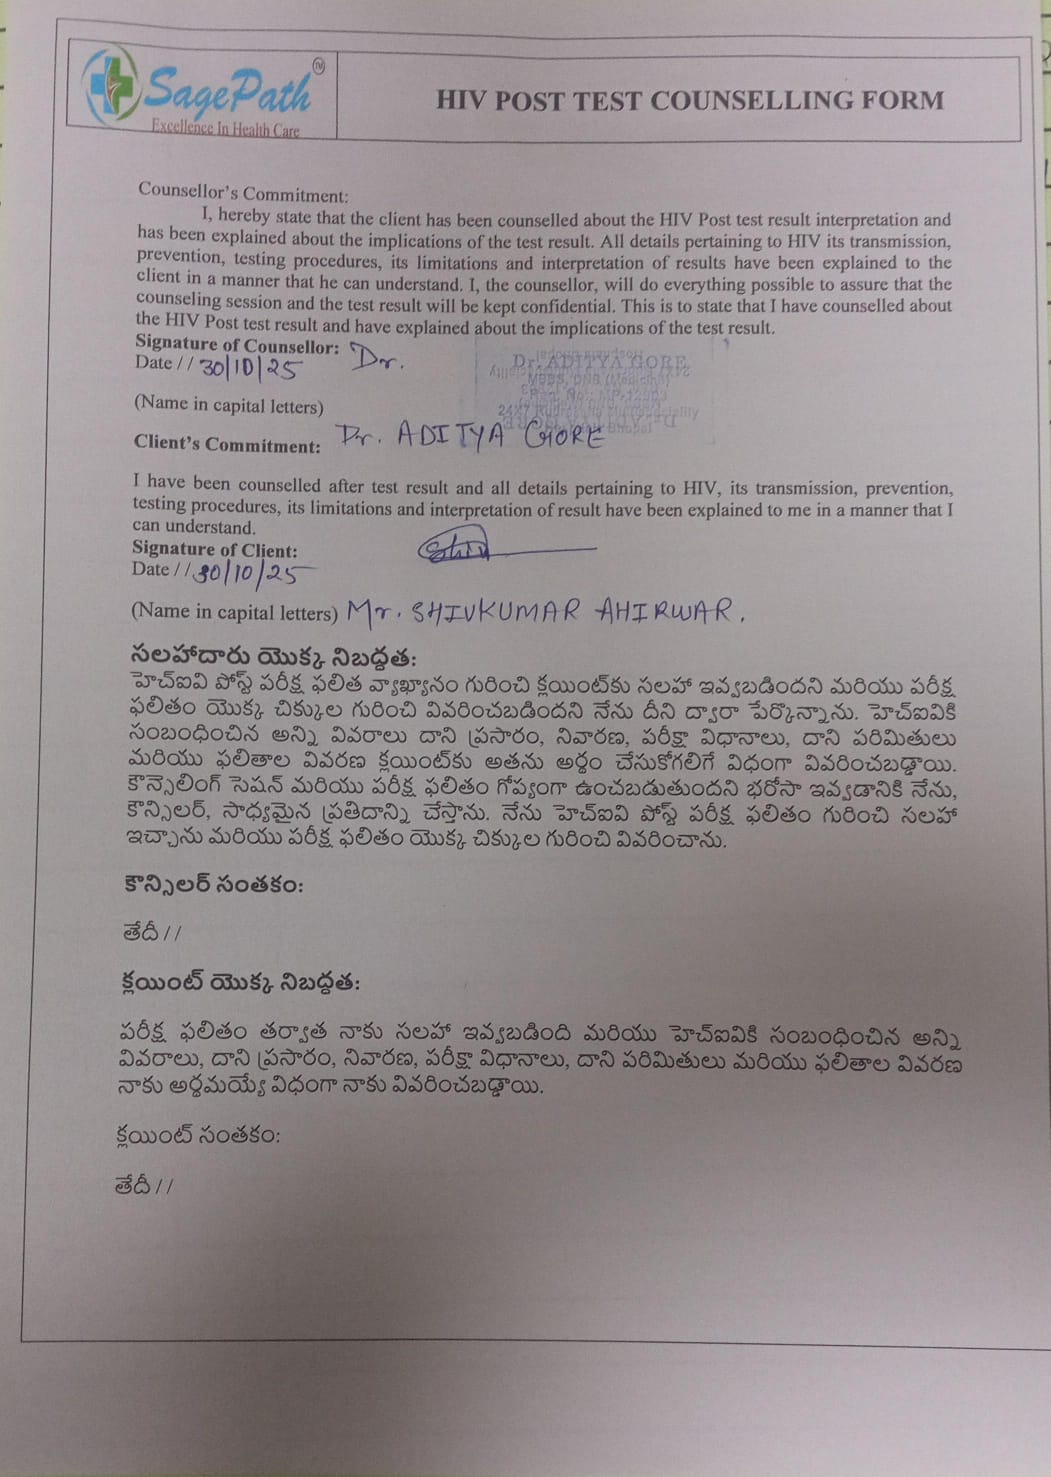 SagePath TM
Excellence In Health Care
HIV POST TEST COUNSELLING FORM
Counsellor's Commitment:
I, hereby state that the client has been counselled about the HIV Post test result interpretation and
has been explained about the implications of the test result. All details pertaining to HIV its transmission,
prevention, testing procedures, its limitations and interpretation of results have been explained to the
client in a manner that he can understand. I, the counsellor, will do everything possible to assure that the
counseling session and the test result will be kept confidential. This is to state that I have counselled about
the HIV Post test result and have explained about the implications of the test result.
Signature of Counsellor: Dr.
Date // 30/10/25
Dr. ADITYA GORE
MBBS, DNB
(Name in capital letters)
Client's Commitment: Dr. ADITYA GORE
I have been counselled after test result and all details pertaining to HIV, its transmission, prevention,
testing procedures, its limitations and interpretation of result have been explained to me in a manner that I
can understand.
Signature of Client:
Date // 30/10/25
(Name in capital letters) Mr. SHIVKUMAR AHIRWAR.
సలహాదారు యొక్క నిబద్ధత:
హెచ్ఐవి పోస్ట్ పరీక్ష ఫలిత వ్యాఖ్యానం గురించి క్లయింట్‌కు సలహా ఇవ్వబడిందని మరియు పరీక్ష
ఫలితం యొక్క చిక్కుల గురించి వివరించబడిందని నేను దీని ద్వారా పేర్కొన్నాను. హెచ్ఐవికి
సంబంధించిన అన్ని వివరాలు దాని ప్రసారం, నివారణ, పరీక్షా విధానాలు, దాని పరిమితులు
మరియు ఫలితాల వివరణ క్లయింట్‌కు అతను అర్థం చేసుకోగలిగే విధంగా వివరించబడ్డాయి.
కౌన్సెలింగ్ సెషన్ మరియు పరీక్ష ఫలితం గోప్యంగా ఉంచబడుతుందని భరోసా ఇవ్వడానికి నేను,
కౌన్సిలర్, సాధ్యమైన ప్రతిదాన్ని చేస్తాను. నేను హెచ్ఐవి పోస్ట్ పరీక్ష ఫలితం గురించి సలహా
ఇచ్చాను మరియు పరీక్ష ఫలితం యొక్క చిక్కుల గురించి వివరించాను.
కౌన్సిలర్ సంతకం:
తేదీ //
క్లయింట్ యొక్క నిబద్ధత:
పరీక్ష ఫలితం తర్వాత నాకు సలహా ఇవ్వబడింది మరియు హెచ్ఐవికి సంబంధించిన అన్ని
వివరాలు, దాని ప్రసారం, నివారణ, పరీక్షా విధానాలు, దాని పరిమితులు మరియు ఫలితాల వివరణ
నాకు అర్థమయ్యే విధంగా నాకు వివరించబడ్డాయి.
క్లయింట్ సంతకం:
తేదీ //